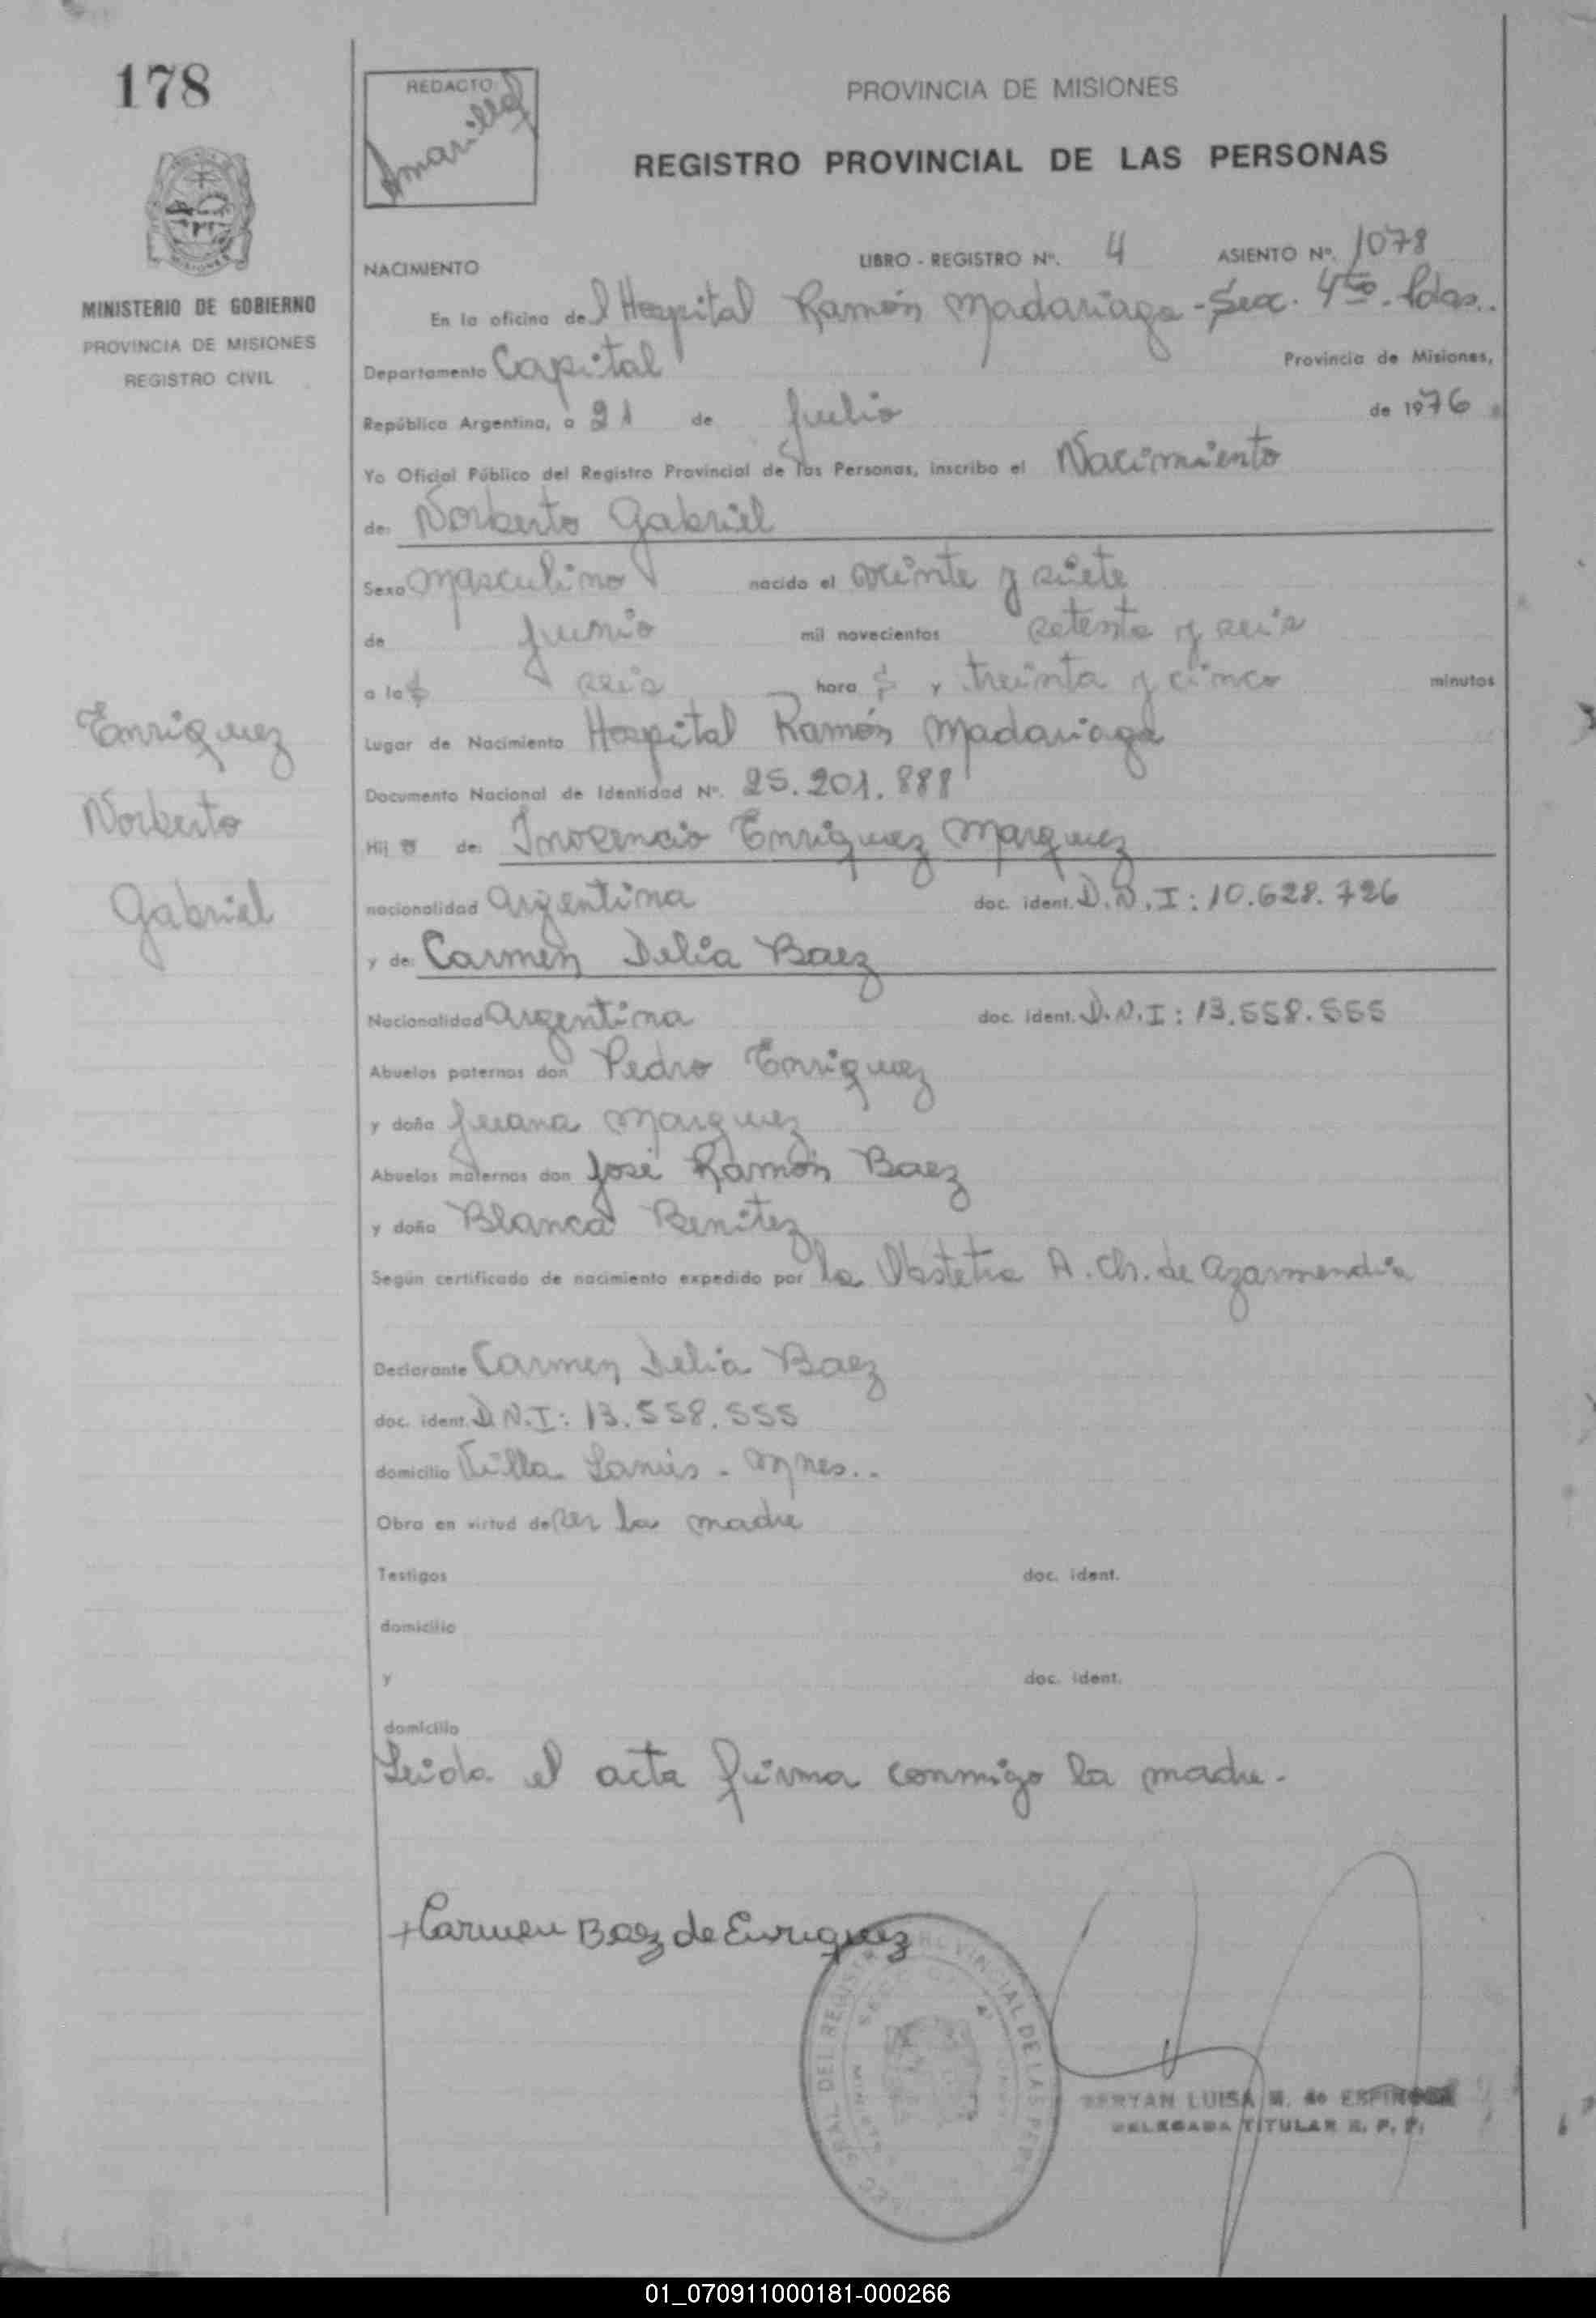 178
REDACTO
Amarilla
PROVINCIA DE MISIONES
REGISTRO PROVINCIAL DE LAS PERSONAS
MISIONES
MINISTERIO DE GOBIERNO
PROVINCIA DE MISIONES
REGISTRO CIVIL
NACIMIENTO LIBRO - REGISTRO Nº. 4 ASIENTO Nº. 1078
En la oficina del Hospital Ramón Madariaga - Sec. 4ta. Pdas..
Departamento Capital Provincia de Misiones,
República Argentina, a 21 de Julio de 1976
Yo Oficial Público del Registro Provincial de las Personas, inscribo el Nacimiento
de: Norberto Gabriel
Sexo masculino nacido el veinte y siete
de Junio mil novecientos setenta y seis
a la s seis hora s y treinta y cinco minutos
Lugar de Nacimiento Hospital Ramón Madariaga
Documento Nacional de Identidad Nº. 25.201.888
Hij o de: Inocencio Enriquez Marquez
nacionalidad argentina doc. ident. D.N.I: 10.628.726
y de: Carmen Delia Baez
Nacionalidad argentina doc. ident. D.N.I: 13.558.555
Abuelos paternos don Pedro Enriquez
y doña Juana Marquez
Abuelos maternos don José Ramón Baez
y doña Blanca Benitez
Según certificado de nacimiento expedido por la Obstetra A. Ch. de Azarmendia
Declarante Carmen Delia Baez
doc. ident. D.N.I: 13.558.555
domicilio Villa Lanús - Mnes..
Obra en virtud de ser la madre
Testigos doc. ident.
domicilio
y doc. ident.
domicilio
Leida el acta firma conmigo la madre.
Enriquez
Norberto
Gabriel
Carmen Baez de Enriquez
GRAL DEL REGISTRO PROVINCIAL DE LAS PERS
LUISA M. de ESPINOSA
DELEGADA TITULAR R. P. P.
01_070911000181-000266